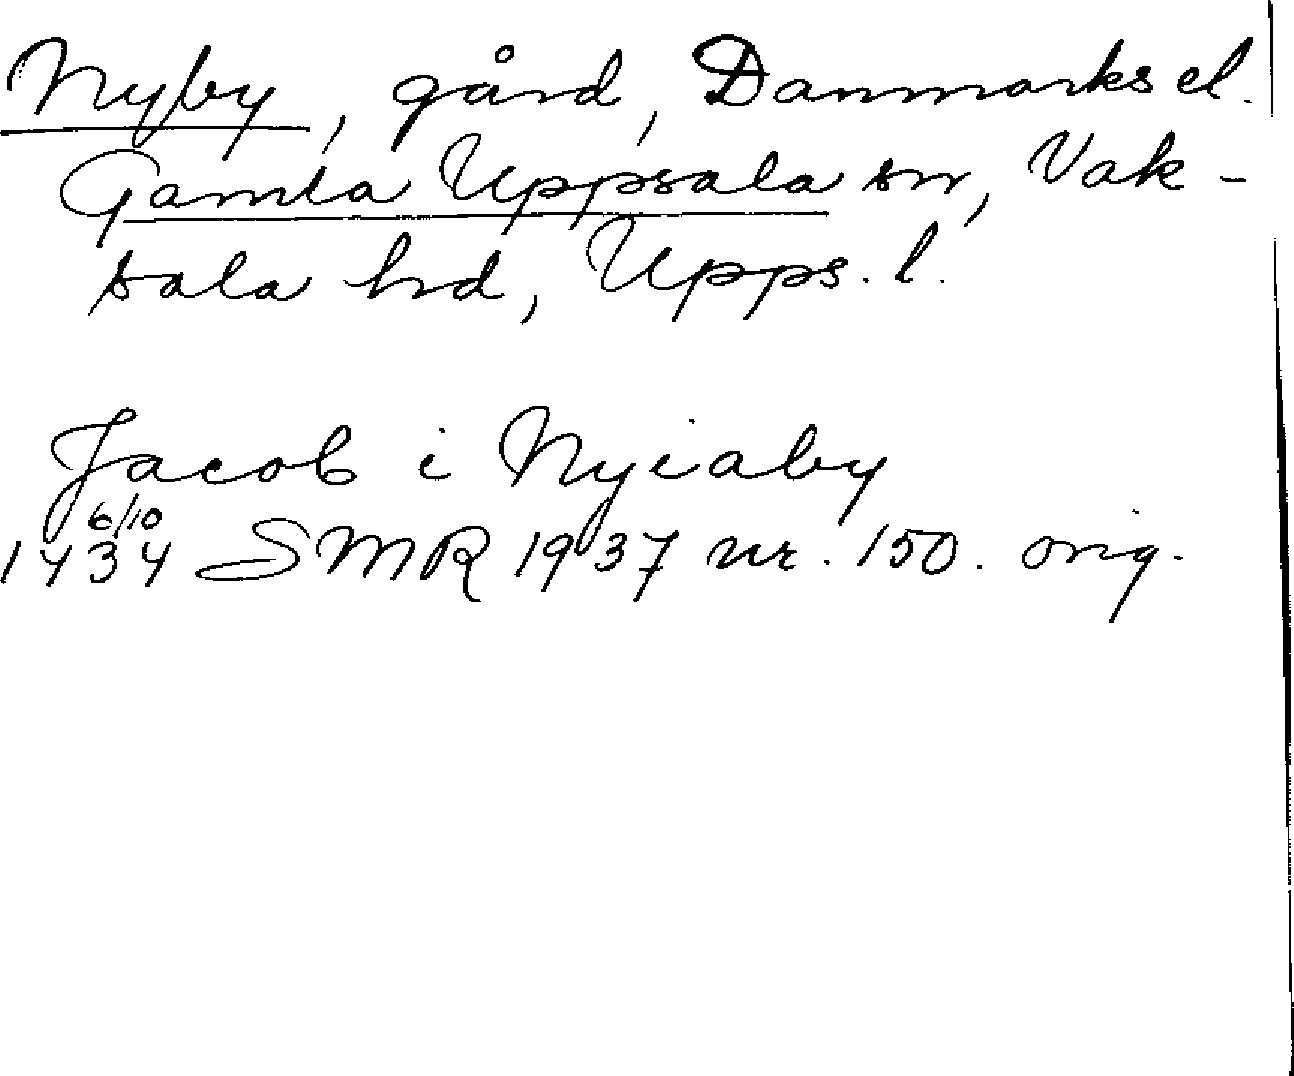 Nyby, gård, Danmarks el.
Gamla Uppsala sn, Vak-
sala hd, Upps. l.
Jacob i Nyiaby
6/10
1434 SMR 1937 nr. 150. orig.